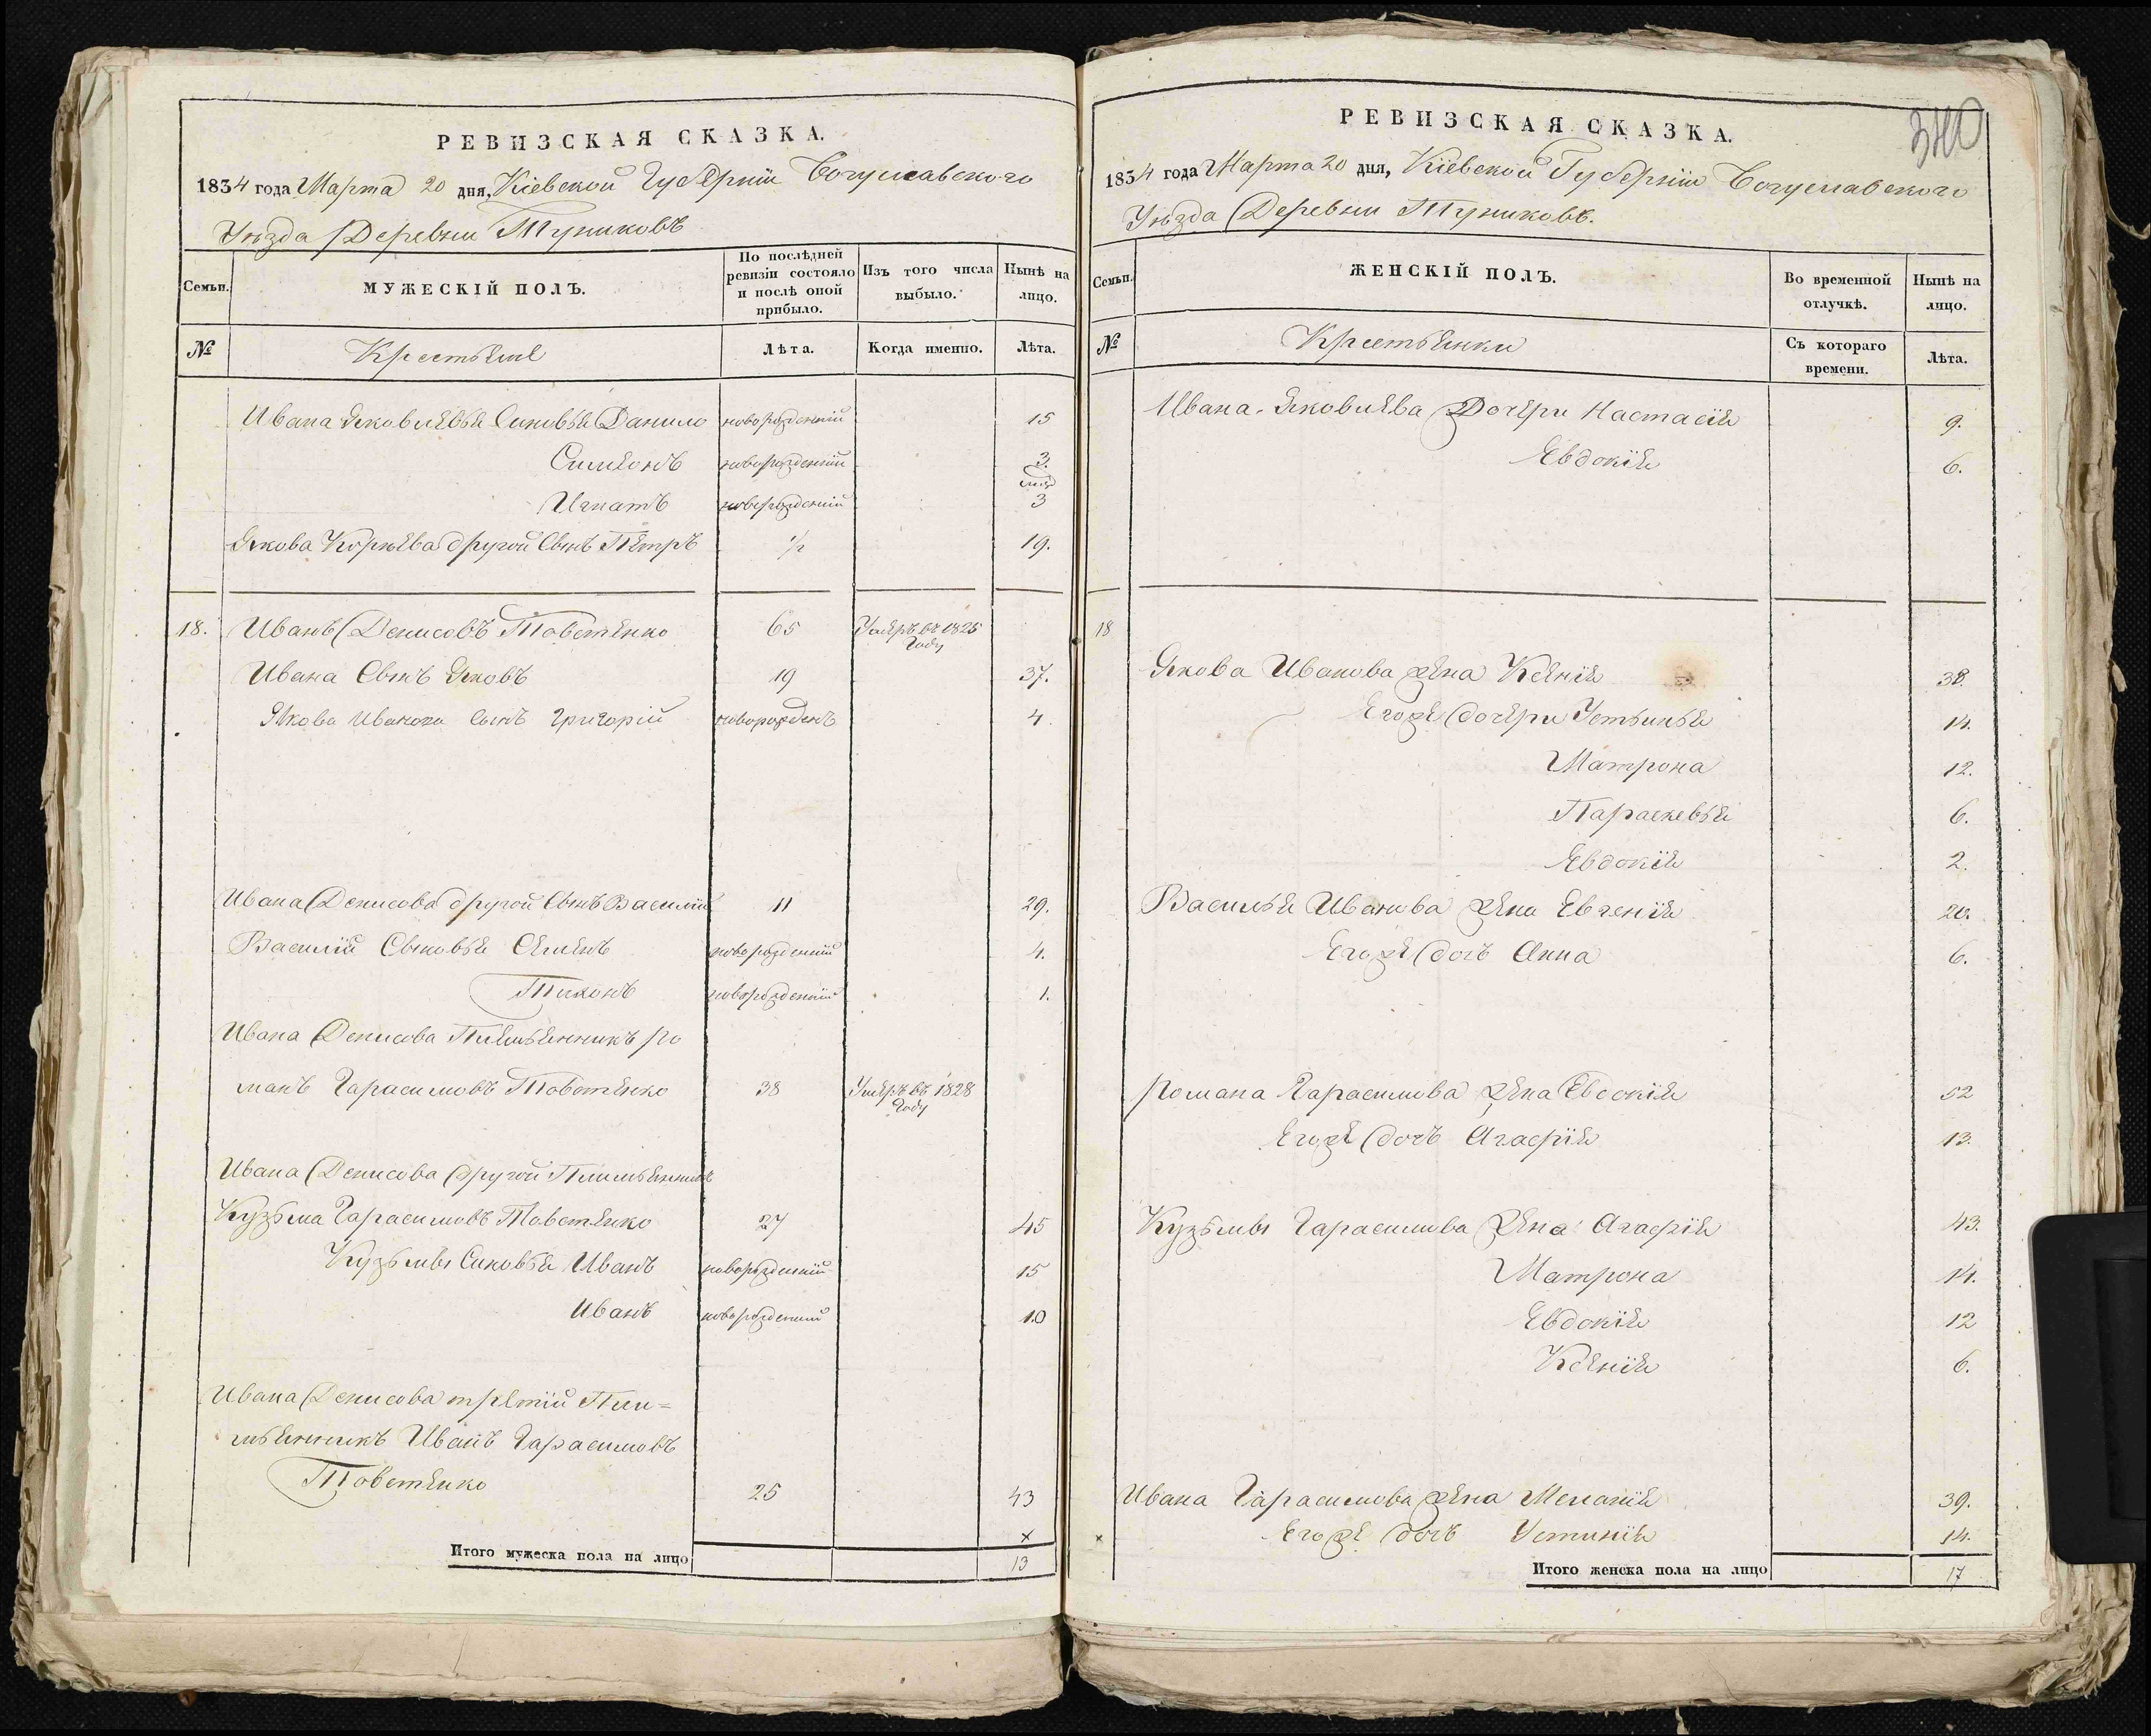 РЕВИЗСКАЯ СКАЗКА.
1834 года Марта 20 дня, Кіевской Губерніи Богуславского
Уѣзда Деревни Туниковъ
Семьи.
МУЖЕСКІЙ ПОЛЪ.
По послѣдней ревизіи состояло и послѣ оной прибыло.
Изъ того числа выбыло.
Нынѣ на лицо.
№
Крестьяне
Лѣта.
Когда именно.
Лѣта.
Ивана Яковлевъя Синовъя Данило новорожденній 15
Симеонъ новорожденній 3
Игнатъ новорожденній 3
Якова Корнѣева другой Сынъ Петръ 1/2 19.
18. Иванъ Денисовъ Товстенко 65 Умеръ въ 1825 Году
Ивана Сынъ Яковъ 19 37.
Якова Иванова Сынъ Григорій новорожденъ 4.
Ивана Денисова другой Сынъ Василій 11 29.
Василій Сыновья Семенъ новорожденній 4.
Тихонъ новорожденній 1.
Ивана Денисова Племьенникъ Ро
манъ Гарасимовъ Товстенко 38 Умеръ въ 1828 Году
Ивана Денисова другой Племьенникъ
Кузьма Гарасимовъ Товстенко 27 45
Кузьмы Синовья Иванъ новорожденній 15
Иванъ новорожденній 10
Ивана Денисова третій Пле=
мьенникъ Иванъ Гарасимовъ
Товстенко 25 43
×
Итого мужеска пола на лицо 13
340
РЕВИЗСКАЯ СКАЗКА.
1834 года Марта 20 дня, Кіевской Губерніи Богуславского
Уѣзда Деревни Туниковъ.
Семьи.
ЖЕНСКІЙ ПОЛЪ.
Во временной отлучкѣ.
Нынѣ на лицо.
№
Крестьянки
Съ котораго времени.
Лѣта.
Ивана Яковлева Дочери Настасія 9.
Евдокія 6.
18
Якова Иванова жена Ксенія 38.
Егоже дочери Устинья 14.
Матрона 12.
Параскевья 6.
Евдокія 2.
Василья Иванова жена Евгенія 20.
Егоже дочъ Анна 6.
Романа Гарасимова жена Евдокія 52
Егоже дочъ Агафія 13.
Кузьмы Гарасимова жена Агафія 43.
Матрона 14.
Евдокія 12
Ксенія 6.
Ивана Гарасимова жена Меланія 39.
× Егоже дочъ Устинія 14.
Итого женска пола на лицо 17